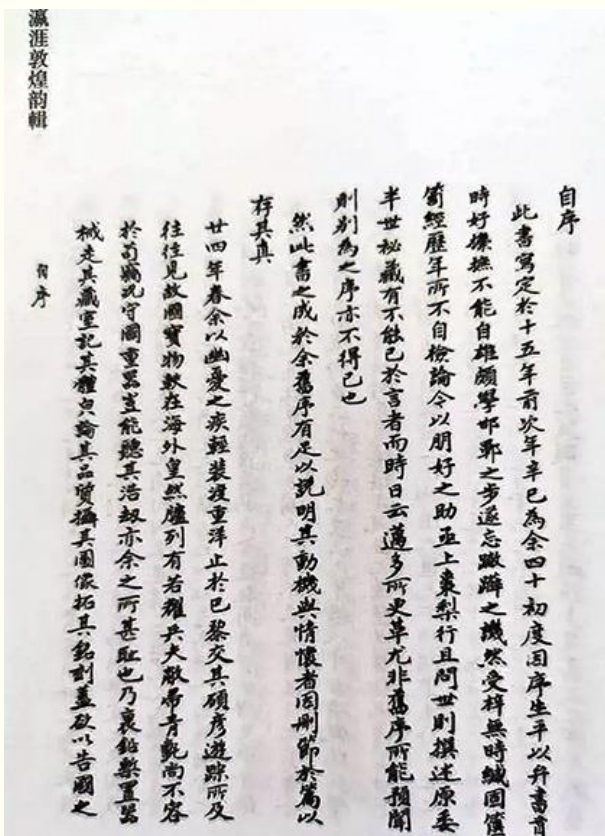 自序
此書寫定於十五年前次年辛巳為余四十初度因序生平以弁書首
時好攗摭不能自雄頗學邯鄲之步遂忘之譏然受梓無時緘固篋
笥經歷年所不自檢論今以朋好之助亟上棗梨行且問世則撰述原委
半世秘藏有不能已於言者而時日云邁多所更革尤非舊序所能預聞
則別為之序亦不得已也
然此書之成於余舊序有足以説明其動機與情懷者因刪節於篇以
存其真
廿四年春余以幽憂之疾輕裝渡重洋止於巴黎交其碩彥遊踪所及
往往見故國寶物軼在海外皇然臚列有若耀兵大敵帚青氈尚不容
於苟竊況守國重器豈能聽其浩劫亦余之所甚恥也乃裹鉛槧置器
械走其藏室記其種論其品質攝其圖像拓其銘刻蓋欲以告國之
瀛涯敦煌韵輯
自序